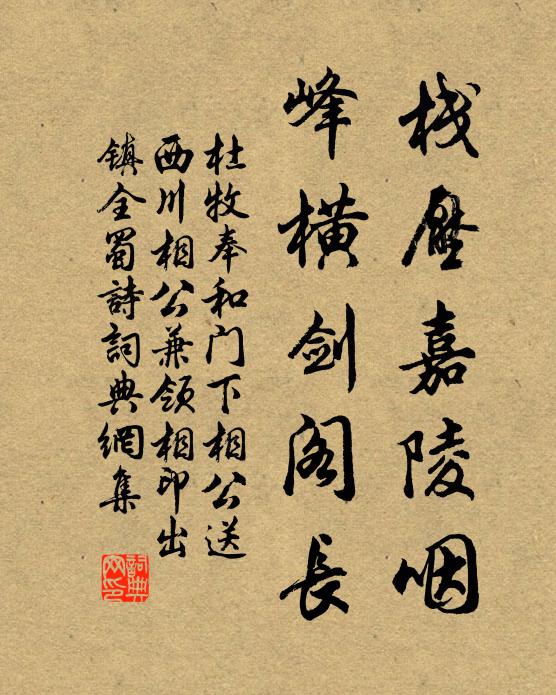 栈壓嘉陵咽
峰橫剑阁長
杜牧奉和门下相公送
西川相公兼领相印出
镇全蜀詩詞典網集
詞典
网印